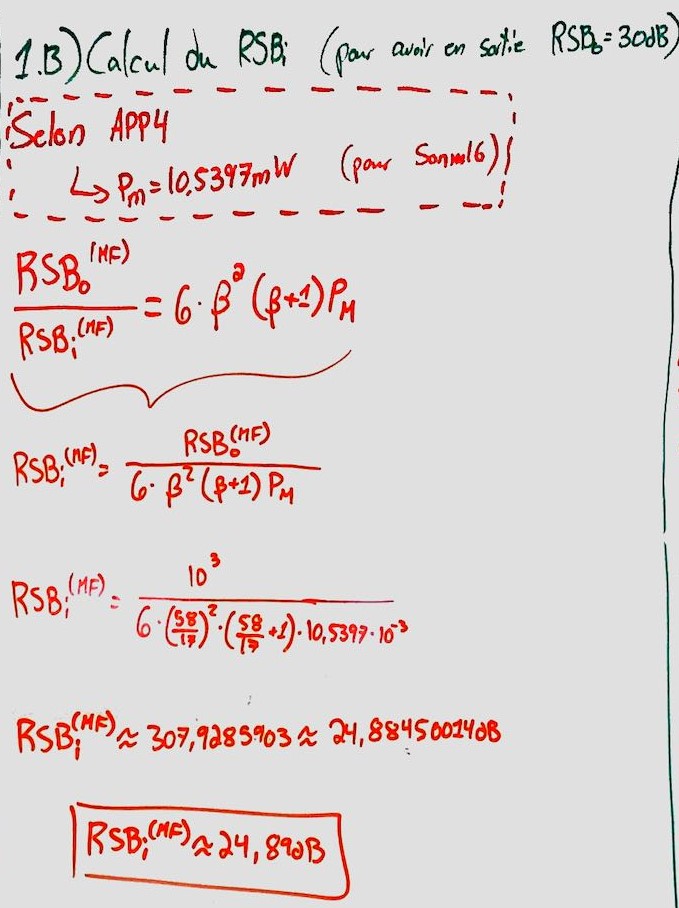 1.B) Calcul du RSBi (pour avoir en sortie RSBo = 30dB)
Selon APP4
↳ Pm = 10,5397mW (pour Sonnul6)
RSBo^(MF) / RSBi^(MF) = 6 · β² (β+1) PM
RSBi^(MF) = RSBo^(MF) / 6 · β² (β+1) PM
RSBi^(MF) = 10³ / 6 · (58/17)² · (58/17 + 1) · 10,5397 · 10⁻³
RSBi^(MF) ≈ 307,9285903 ≈ 24,88450014dB
RSBi^(MF) ≈ 24,89dB